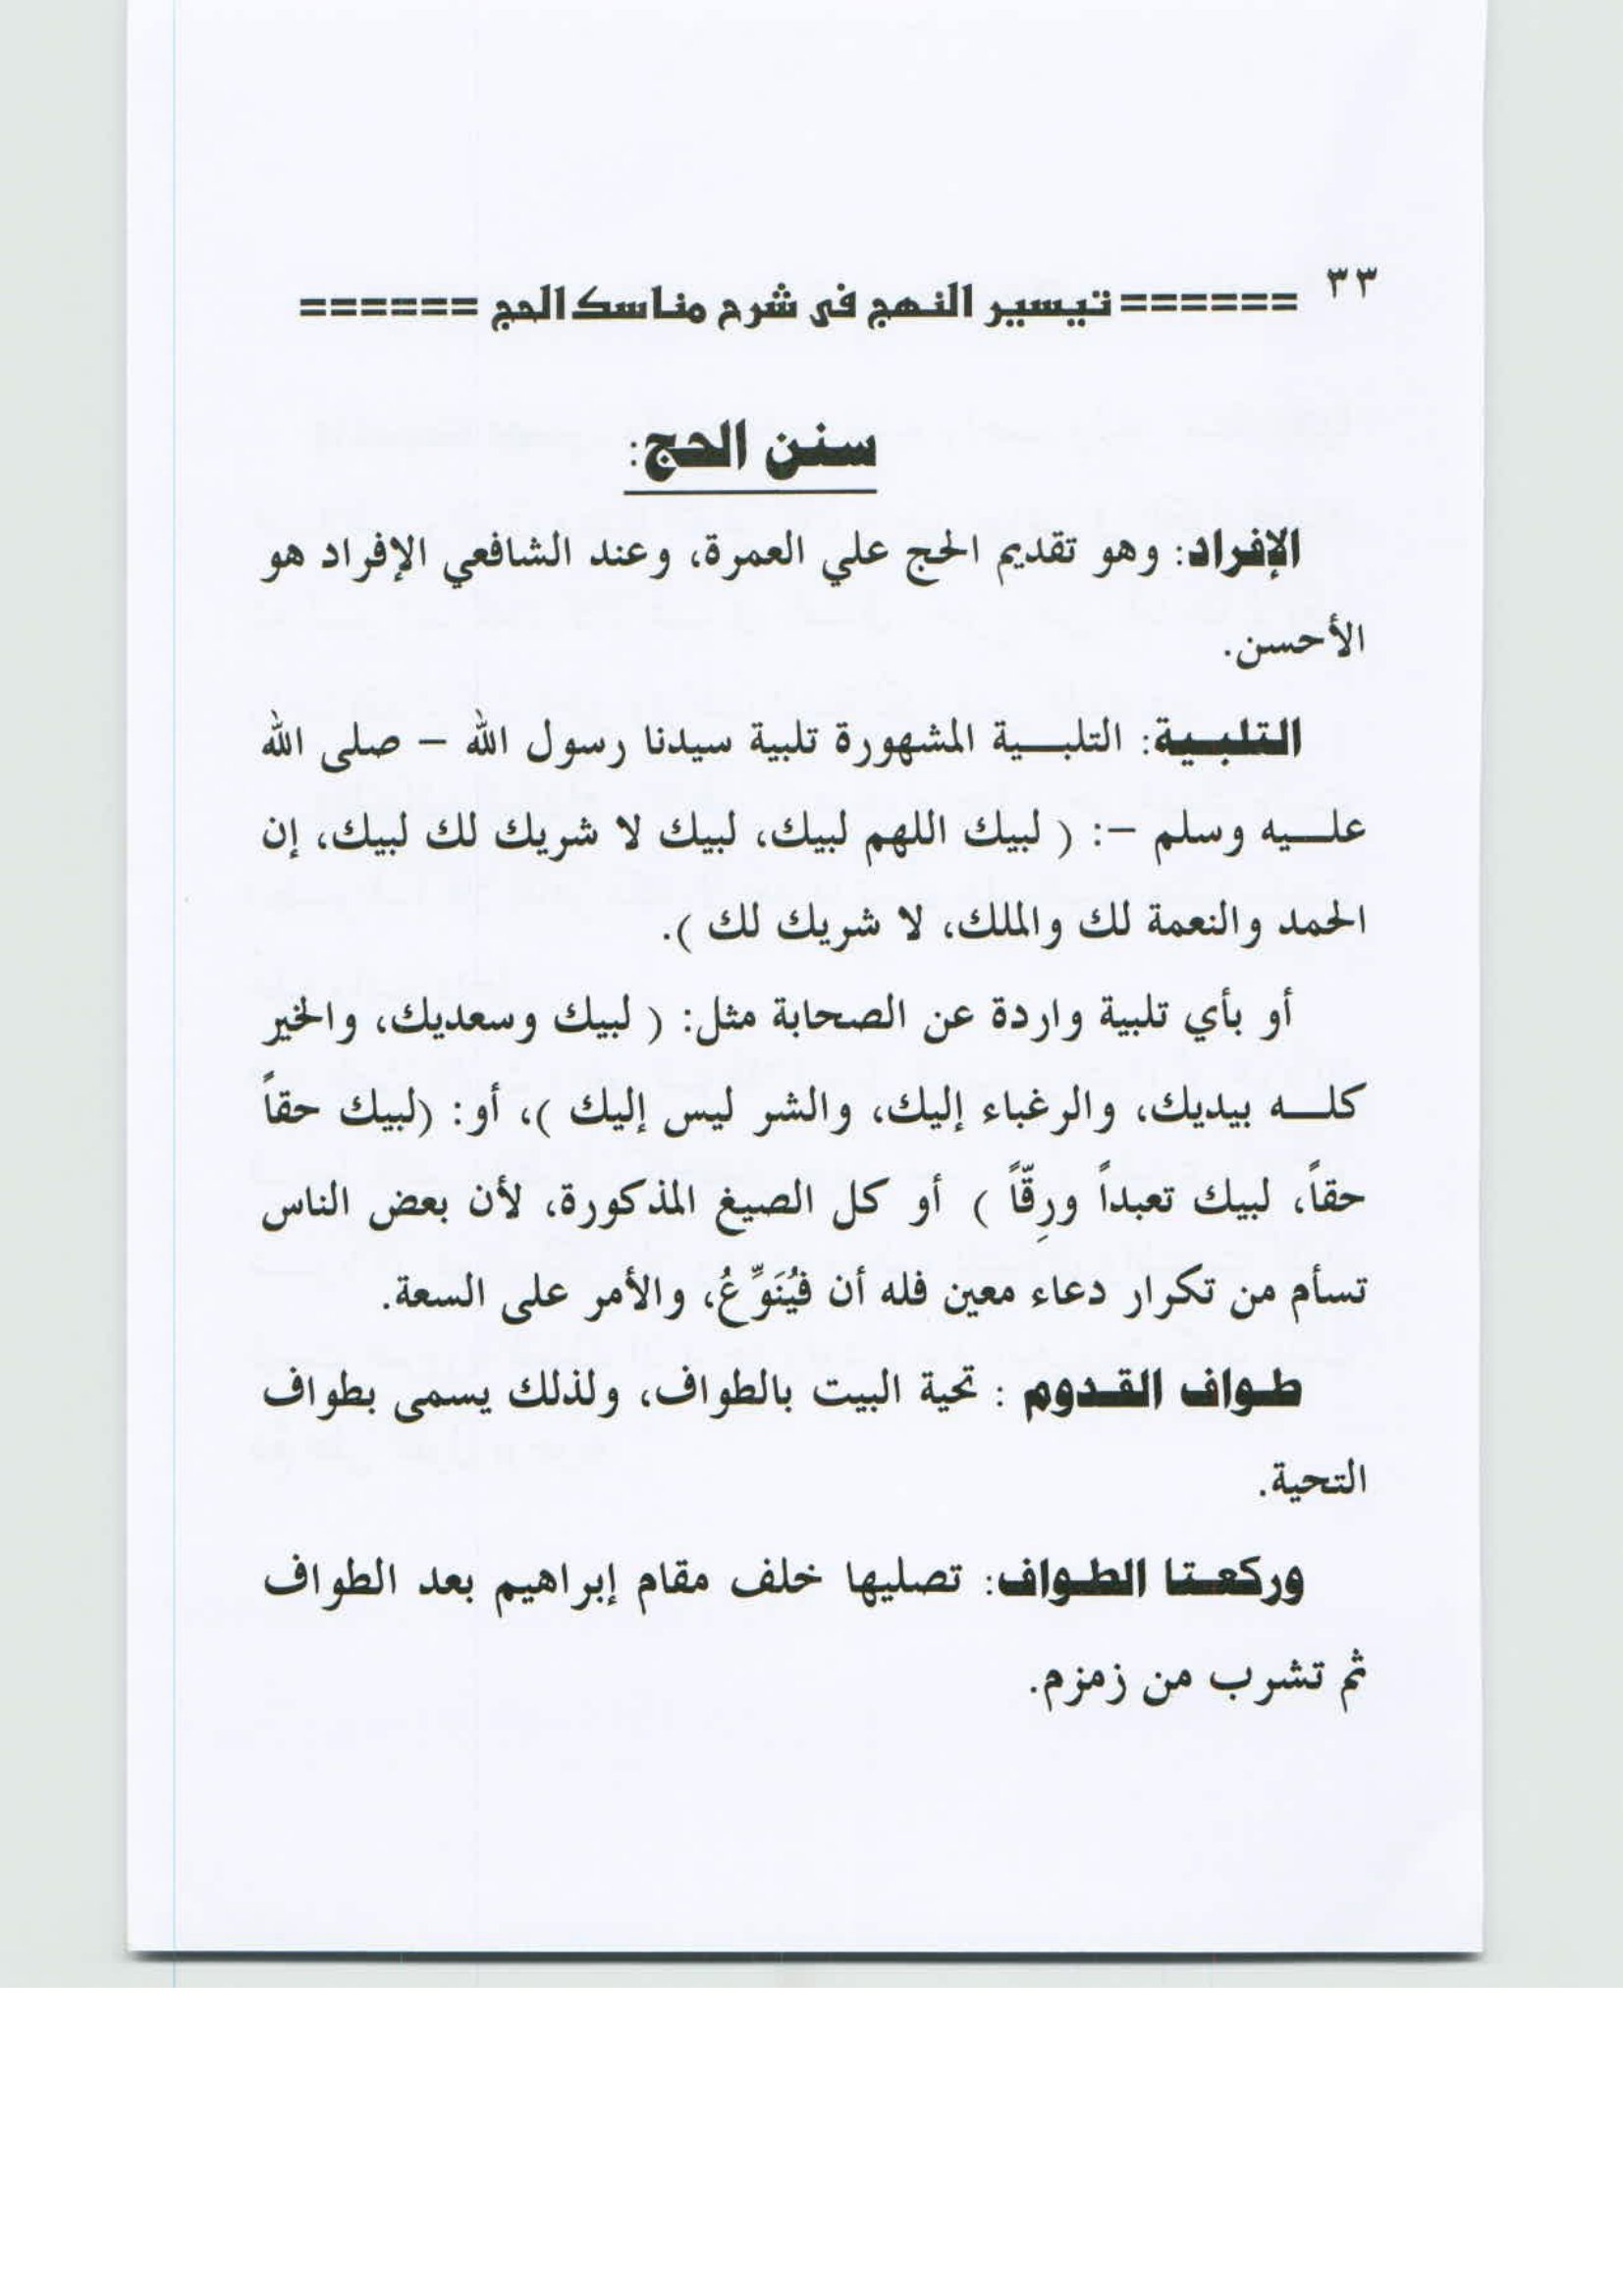 ٣٣
====== تيسير النهج في شرح مناسك الحج ======
سنن الحج:
الإفراد: وهو تقديم الحج علي العمرة، وعند الشافعي الإفراد هو
الأحسن.
التلبــية: التلبــية المشهورة تلبية سيدنا رسول الله – صلى الله
علــيه وسلم –: ( لبيك اللهم لبيك، لبيك لا شريك لك لبيك، إن
الحمد والنعمة لك والملك، لا شريك لك ).
أو بأي تلبية واردة عن الصحابة مثل: ( لبيك وسعديك، والخير
كلــه بيديك، والرغباء إليك، والشر ليس إليك )، أو: (لبيك حقاً
حقاً، لبيك تعبداً ورِقّاً ) أو كل الصيغ المذكورة، لأن بعض الناس
تسأم من تكرار دعاء معين فله أن فيُنَوِّعُ، والأمر على السعة.
طـواف القـدوم : تحية البيت بالطواف، ولذلك يسمى بطواف
التحية.
وركعـتا الطـواف: تصليها خلف مقام إبراهيم بعد الطواف
ثم تشرب من زمزم.